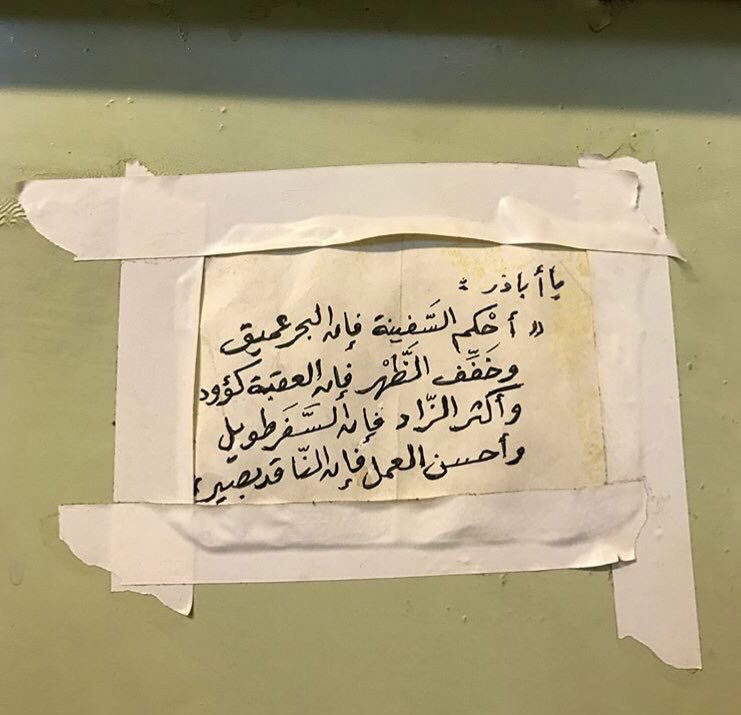 يا أباذر :
« أحْكم السَّفينة فإن البحر عميق
وخَفِّف الظَّهْر فإن العقبة كؤود
وأكثر الزّاد فإن السَّفَر طويل
وأحسن العمل فإن النّاقد بصير »